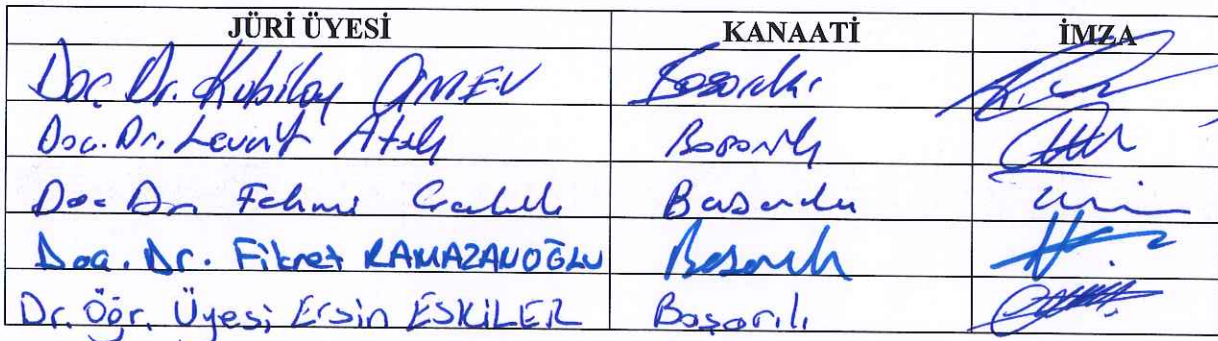 JÜRİ ÜYESİ KANAATİ İMZA
Doç. Dr. Kubilay ÇİMEN Başarılı
Doç. Dr. Levent Atalı Başarılı
Doç. Dr. Fehmi Çalık Başarılı
Doç. Dr. Fikret RAMAZANOĞLU Başarılı
Dr. Öğr. Üyesi Ersin ESKİLER Başarılı